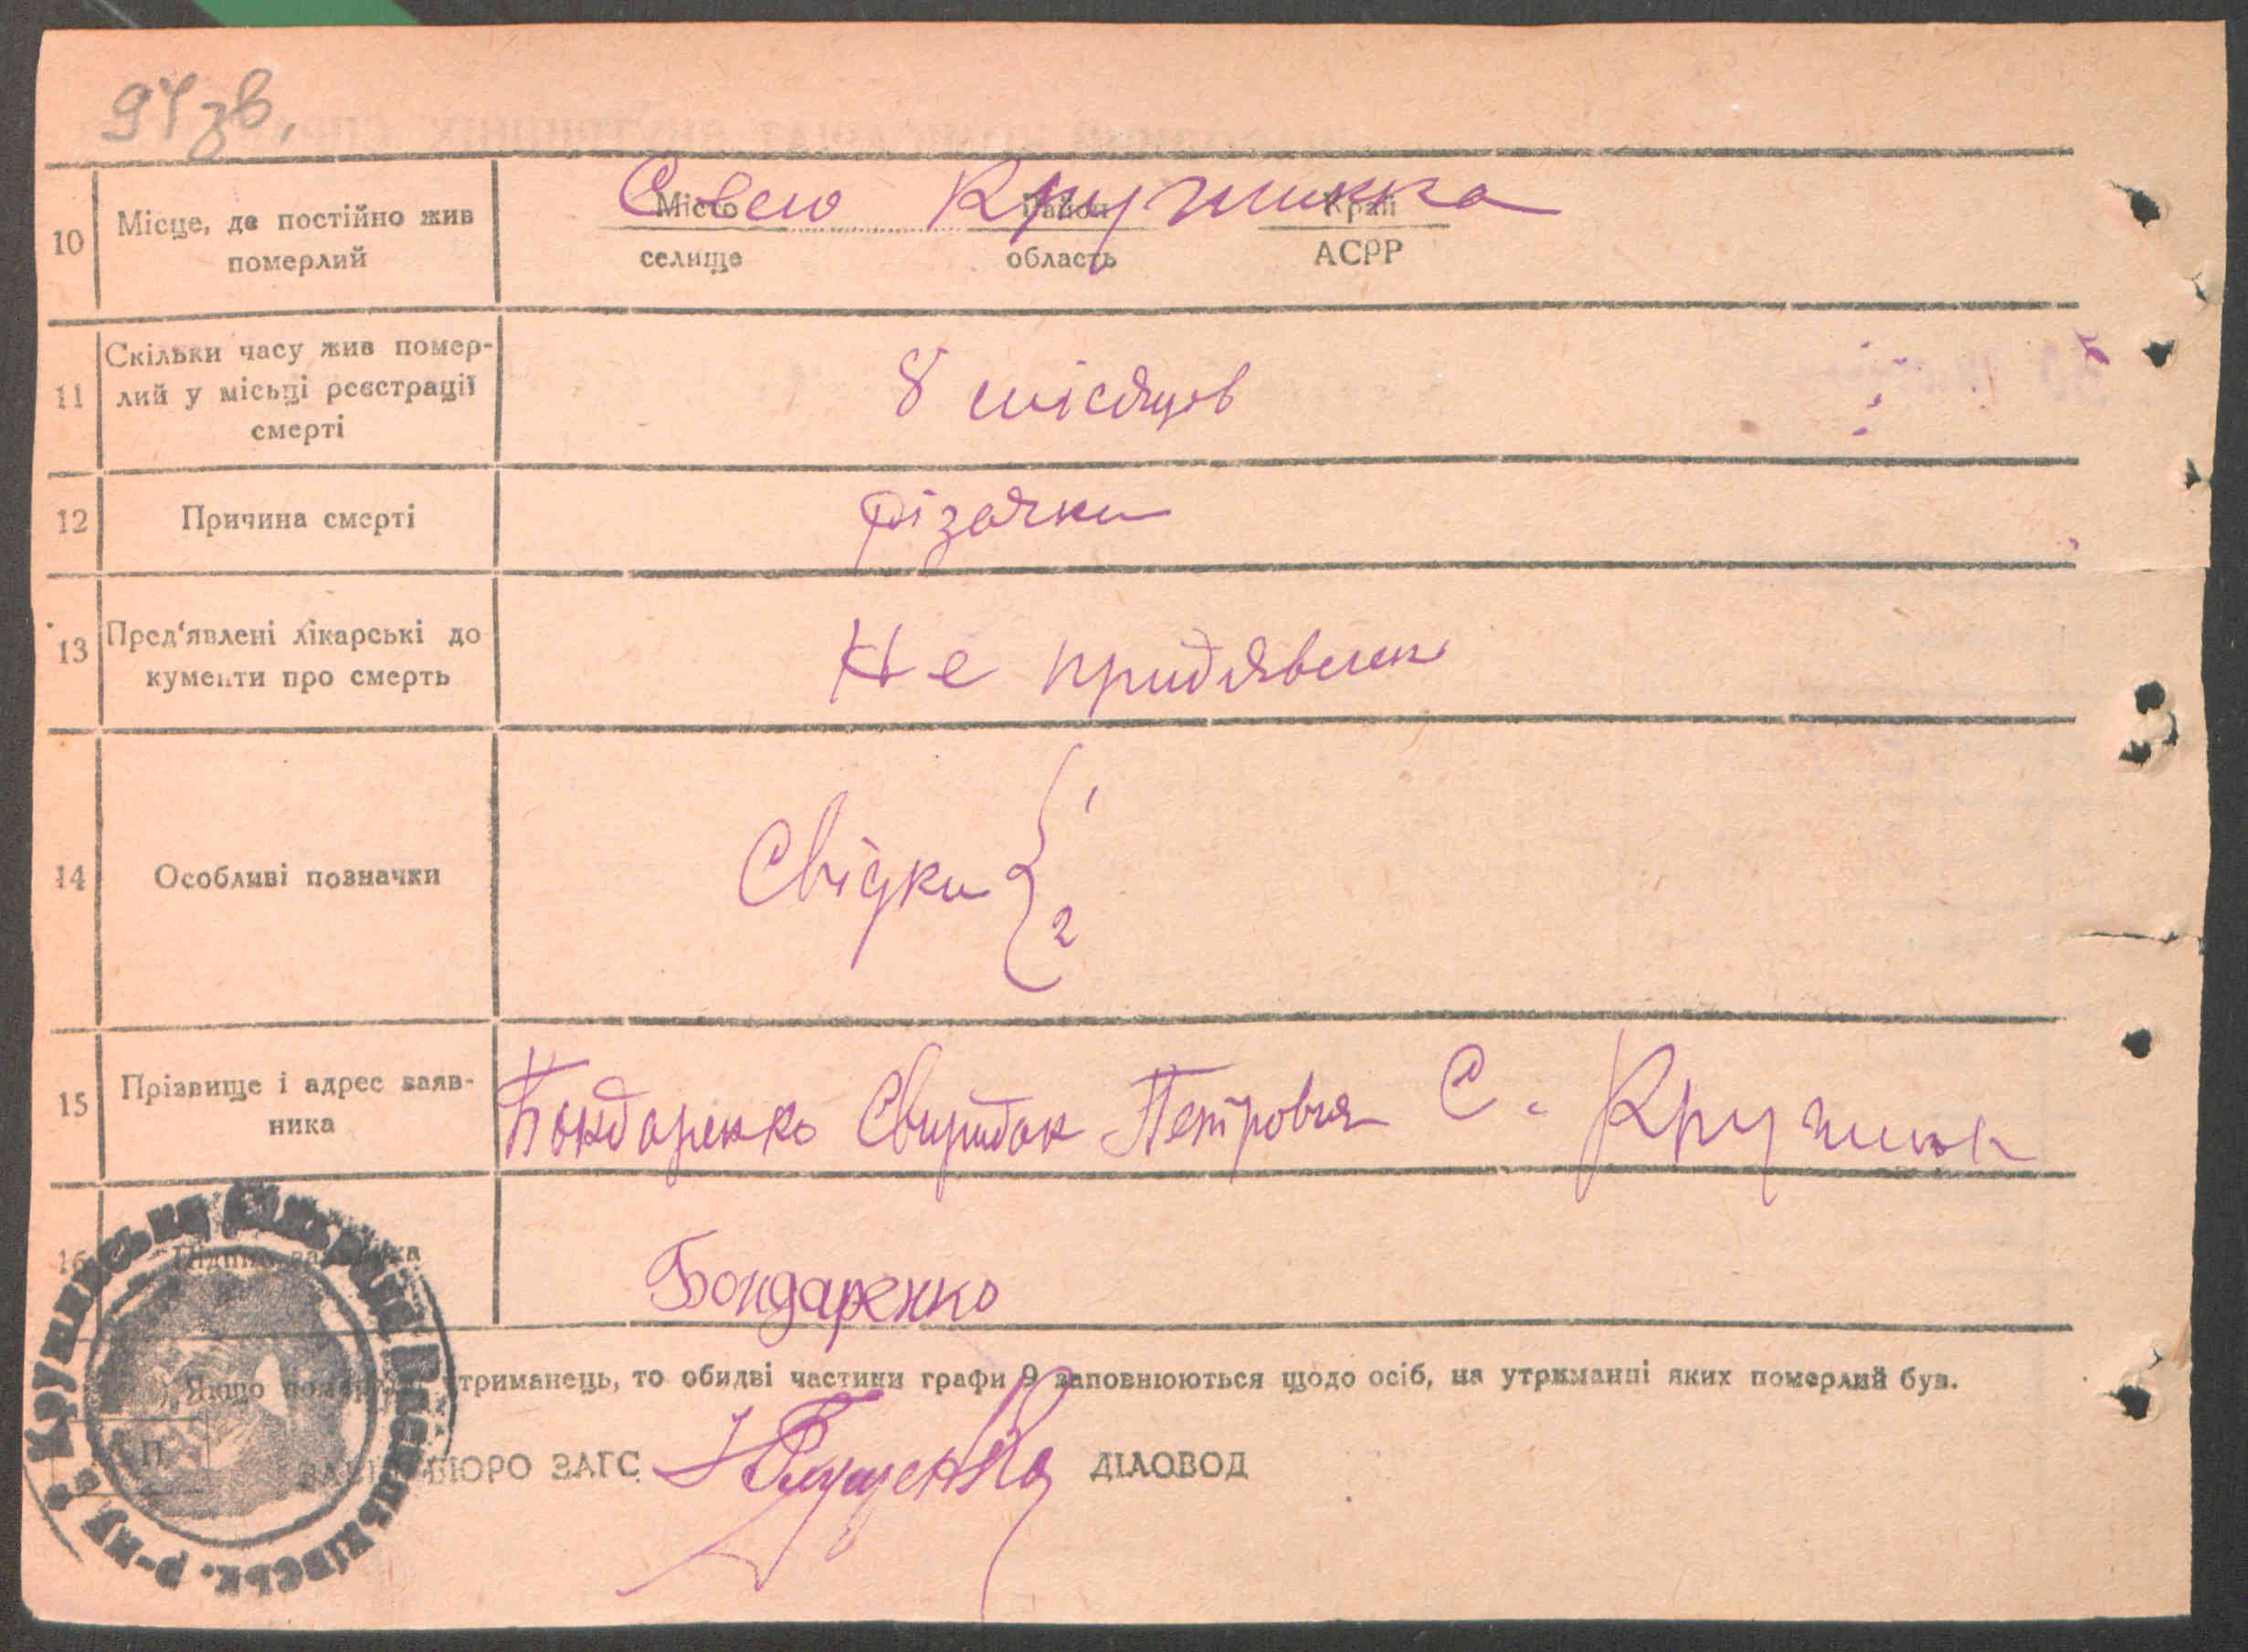 97 зв.
10 Місце, де постійно жив померлий
Село Крушинка
Місто Район Край
селище область АСРР
11 Скільки часу жив помер-
лий у місьці реєстрації
смерті
8 місяцов
12 Причина смерті
різачки
13 Пред'явлені лікарські до
кументи про смерть
Не придявлен
14 Особливі позначки
Свідки { 1
2
15 Прізвище і адрес заяв-
ника
Бондаренко Свиридон Петрович С. Крушинк
16 Підпис заявника
Бондаренко
Якщо померлий утриманець, то обидві частини графи 9 заповнюються щодо осіб, на утриманні яких померлий був.
М. П.
ЗАВ. БЮРО ЗАГС
ДІЛОВОД
Крушинська сільрада Васильківськ. р-ну